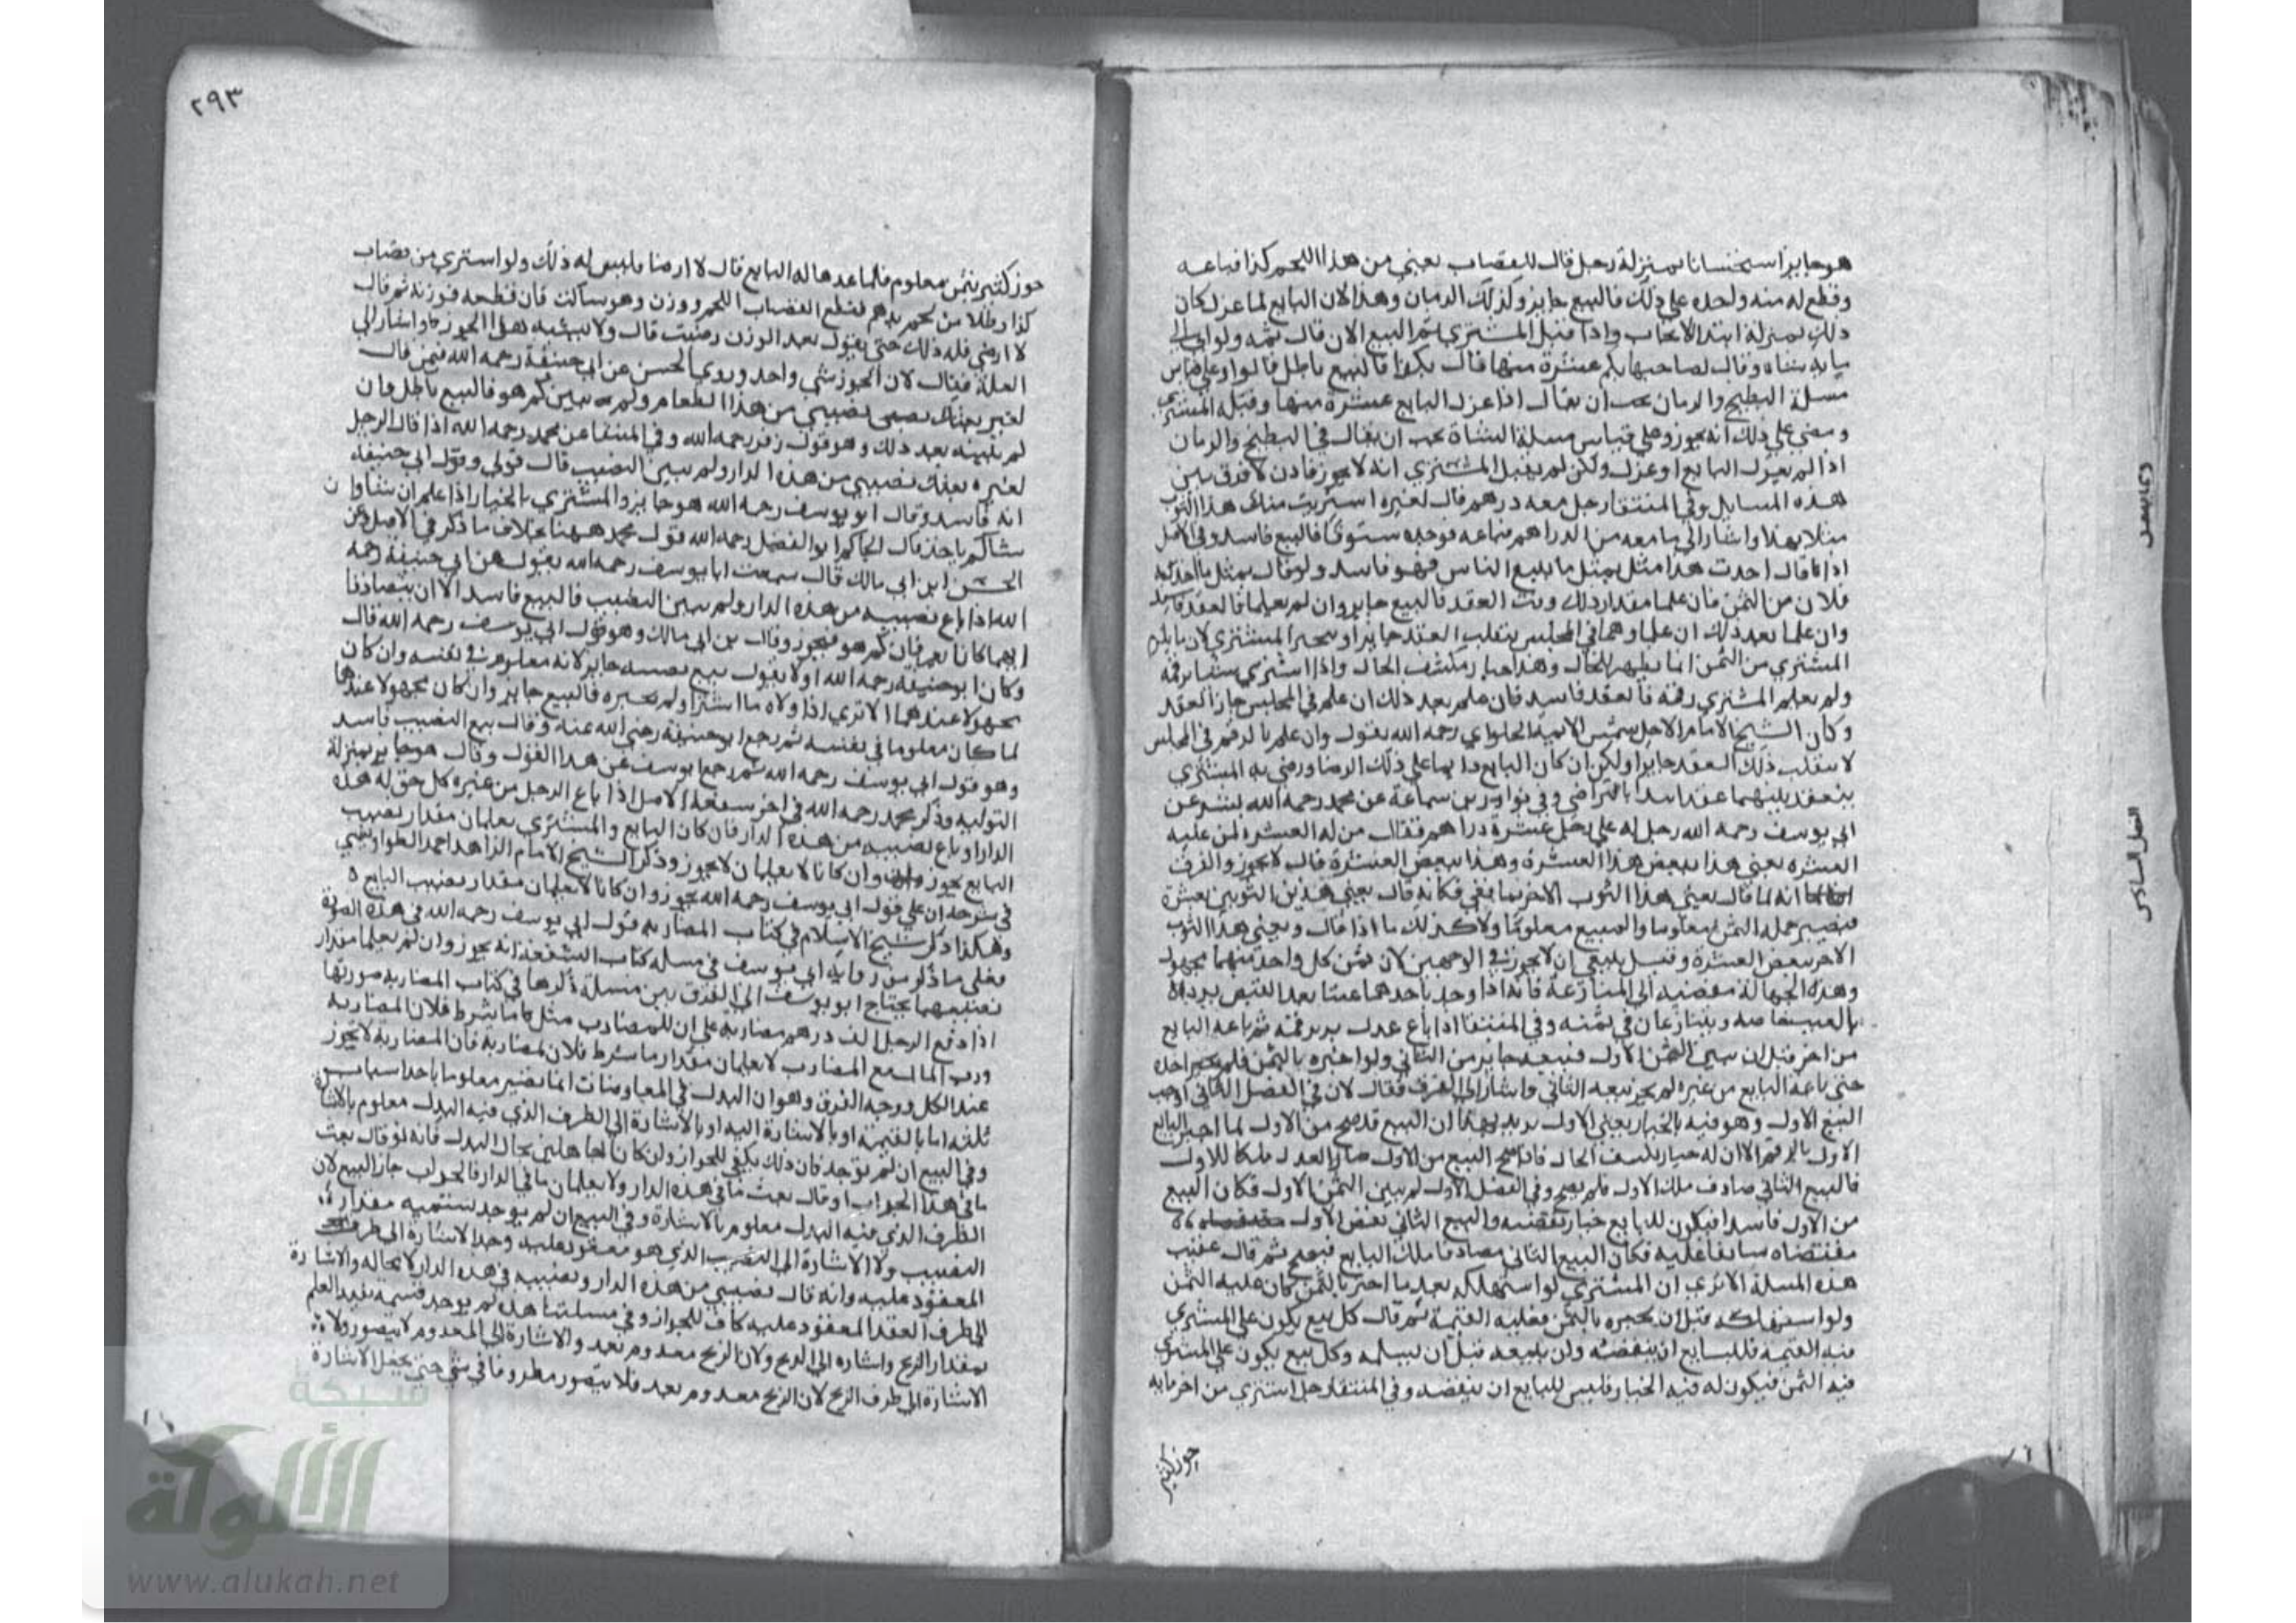 هو جايز استحسانا بمنزلة رجل قال للقصاب بعني من هذا اللحم كذا فباعه
وقطع له منه واخذه علي ذلك فالبيع جايز وكذلك الرمان وهذا لان البايع لما عزل كان
ذلك بمنزلة ابتدا الايجاب واذا قبل المشتري تم البيع الان قال ثمه ولو اتي الي
ماية شاه وقال لصاحبها بكم عشرة منها قال بكذا فالبيع باطل قالوا وعلي قياس
مسلة البطيخ والرمان يجب ان يقال اذا عزل البايع عشرة منها وقبله المشتري
ومضي علي ذلك انه يجوز وعلي قياس مسلة الشاة يجب ان يقال في البطيخ والرمان
اذا لم يعزل البايع او عزل ولكن لم يقبل المشتري انه لا يجوز فاذن لا فرق بين
هذه المسايل وفي المنتقا رجل معه درهم قال لغيره اشتريت منك هذا الثوب
مثلا بهذا واشار الي ما معه من الدراهم فباعه فوجده ستوقا فالبيع فاسد وفي الاصل
اذا قال اخذت هذا مثل بمثل ما يبيع الناس فهو فاسد ولو قال بمثل ما اخذ به
فلان من الثمن فان علما مقدار ذلك وقت العقد فالبيع جايز وان لم يعلما فالعقد فاسد
وان علما بعد ذلك ان علما وهما في المجلس ينقلب العقد جايزا ويخير المشتري لان ما يلزم
المشتري من الثمن انما يظهر للحال وهذا خيار تكشف الحال واذا اشتري شيا برقمه
ولم يعلم المشتري رقمه فالعقد فاسد فان علم بعد ذلك ان علم في المجلس جاز العقد
وكان الشيخ الامام الاجل شمس الايمة الحلواي رحمه الله يقول وان علم بالرقم في المجلس
لا ينقلب ذلك العقد جايزا ولكن ان كان البايع دايما علي ذلك الرضا ورضي به المشتري
ينعقد بينهما عقد ابتدا بالتراضي وفي نوادر بن سماعة عن محمد رحمه الله بشر عن
ابي يوسف رحمه الله رجل له علي رجل عشرة دراهم فقال من له العشرة لمن عليه
العشره بعني هذا ببعض هذا العشرة وهذا ببعض العشرة قال لا يجوز والفرق
انه لما قال بعني هذا الثوب الاخر بما بقي فكانه قال بعني هذين الثوبين بعشرة
فتصير جملة الثمن معلوما والمبيع معلوما ولا كذلك ما اذا قال وبعني هذا الثوب
الاخر ببعض العشرة وقيل ينبغي ان لا يجوز في الوجهين لان ثمن كل واحد منهما مجهول
وهذه الجهالة مفضية الي المنازعة فانه اذا وجد باحدهما عيبا بعد القبض يرده
بالعيب خاصه ويتنازعان في ثمنه وفي المنتقا اذا باع عدل بز برقمه ثم باعه البايع
من اخر قبل ان يبين الثمن الاول فبيعه جايز من الثاني ولو اخبره بالثمن فلم يجز اخذه
حتي باعه البايع من غيره لم يجز بيعه الثاني واشار الي الفرق فقال لان في الفصل الثاني اوجب
البيع الاول وهو فيه بالخيار يعني الاول يريد بهذا ان البيع قد صح من الاول لما اخبر البايع
الاول بالرقم الا ان له خيار تكشف الحال فاذا صح البيع من الاول صار العدل ملكا للاول
فالبيع الثاني صادف ملك الاول فلم يصح وفي الفصل الاول لم يبين الثمن الاول فكان البيع
من الاول فاسدا فيكون للبايع خيار نقضه والبيع الثاني نقض الاول
مقتضاه سابقا عليه فكان البيع الثاني مصادفا ملك البايع فيصح ثم قال عقيب
هذه المسلة الا تري ان المشتري لو استهلكه بعد ما اخبر بالثمن كان عليه الثمن
ولو استهلكه قبل ان يخبره بالثمن فعليه القيمة ثم قال كل بيع يكون علي المشتري
فيه القيمة فللبايع ان ينقضه وان يبيعه قبل ان يسلمه وكل بيع يكون علي المشتري
فيه الثمن فيكون له فيه الخيار فليس للبايع ان ينقضه وفي المنتقا رجل اشتري من اخر مايه
جوز كثير
الفصل السادس
٢٩٣
جوز كثير بثمن معلوم فلما عدها له البايع قال لا ارضا فليس له ذلك ولو اشتري من قصاب
كذا رطلا من لحم بدرهم فقطع القصاب اللحم ووزن وهو ساكت فان قطعه فوزنه ثم قال
لا ارضي فله ذلك حتي يقول بعد الوزن رضيت قال ولا يشبه هذا الجوز واشار الي
العلة فقال لان الجوز شي واحد وروي الحسن عن ابي حنيفة رحمه الله فيمن قال
لغيره بعتك نصيبي من هذا الطعام ولم يبين كم هو فالبيع باطل وان
لم يبينه بعد ذلك وهو قول زفر رحمه الله وفي المنتقا عن محمد رحمه الله اذا قال الرجل
لغيره بعتك نصيبي من هذه الدار ولم يبين النصيب قال قولي وقول ابي حنيفة
انه فاسد وقال ابو يوسف رحمه الله هو جايز والمشتري بالخيار اذا علم ان شا
شا لم ياخذ قال الحاكم ابو الفضل رحمه الله قول محمد ههنا بخلاف ما ذكر في الاصل وعن
الحسن ابن ابي مالك قال سمعت ابا يوسف رحمه الله يقول عن ابي حنيفة رحمه
الله اذا باع نصيبه من هذه الدار ولم يبين النصيب فالبيع فاسد الا ان يتصادقا
انهما كانا يعرفان كم هو فيجوز وقال بن ابي مالك وهو قول ابي يوسف رحمه الله قال
وكان ابو حنيفة رحمه الله اولا يقول بيع نصيبه جايز لانه معلوم في نفسه وان كان
مجهولا عندهما الا تري اذا ولاه ما اشترا ولم يخبره فالبيع جايز وان كان مجهولا عندهما
لما كان معلوما في نفسه ثم رجع ابو حنيفة رضي الله عنه وقال بيع النصيب فاسد
وهو قول ابي يوسف رحمه الله ثم رجع ابو يوسف عن هذا القول وقال هو جايز بمنزلة
التوليه وذكر محمد رحمه الله في اخر شفعة الاصل اذا باع الرجل من غيره كل حق له هذه
الدار او باع نصيبه من هذه الدار فان كان البايع والمشتري يعلمان مقدار نصيب
البايع يجوز وان كانا لا يعلمان لا يجوز وذكر الشيخ الامام الزاهد احمد الطواويسي
في شرحه ان علي قول ابي يوسف رحمه الله يجوز وان كانا لا يعلمان مقدار نصيب البايع
وهكذا ذكر شيخ الاسلام في كتاب المضاربه قول ابي يوسف رحمه الله في هذه الصورة
فعلي ما ذكر من رواية ابي يوسف في مسلة كتاب الشفعة انه يجوز وان لم يعلما مقدار
نصيبهما يحتاج ابو يوسف الي الفرق بين مسلة ذكرها في كتاب المضاربه صورتها
اذا دفع الرجل الف درهم مضاربة علي ان للمضارب مثل ما شرط فلان لمضاربه
ورب المال مع المضارب لا يعلمان مقدار ما شرط فلان لمضاربه فان المضاربة لا تجوز
عند الكل ووجه الفرق وهو ان البدل في المعاوضات انما يصير معلوما باحد اسباب
ثلثه اما بالقيمة او بالاشارة اليه او بالاشارة الي الظرف الذي فيه البدل معلوم بالاشارة
وفي البيع ان لم توجد فان ذلك يكفي للجواز وان كانا جاهلين بحال البدل فانه لو قال بعت
ما في هذا الجراب او قال بعت ما في هذه الدار ولا يعلمان ما في الدار فالجراب جاز البيع لان
الظرف الذي فيه البدل معلوم بالاشارة وفي البيع ان لم يوجد تسمية مقدار
النصيب ولا الاشارة الي النصيب الذي هو معقود عليه وجد الاشارة الي ظرف
المعقود عليه وانه قال نصيبي من هذه الدار ونصيبه في هذه الدار لا محاله والاشارة
الي ظرف العقد المعقود عليه كاف للجواز وفي مسلتنا هذه لم يوجد قسمة تفيد العلم
بمقدار الربح واشاره الي الربح ولان الربح معدوم بعد والاشارة الي المعدوم لا يتصور ولا
الاشارة الي ظرف الربح لان الربح معدوم بعد فلا يتصور مظروفا في شي حتي يجعل الاشارة
شبكة
الألوكة
www.alukah.net